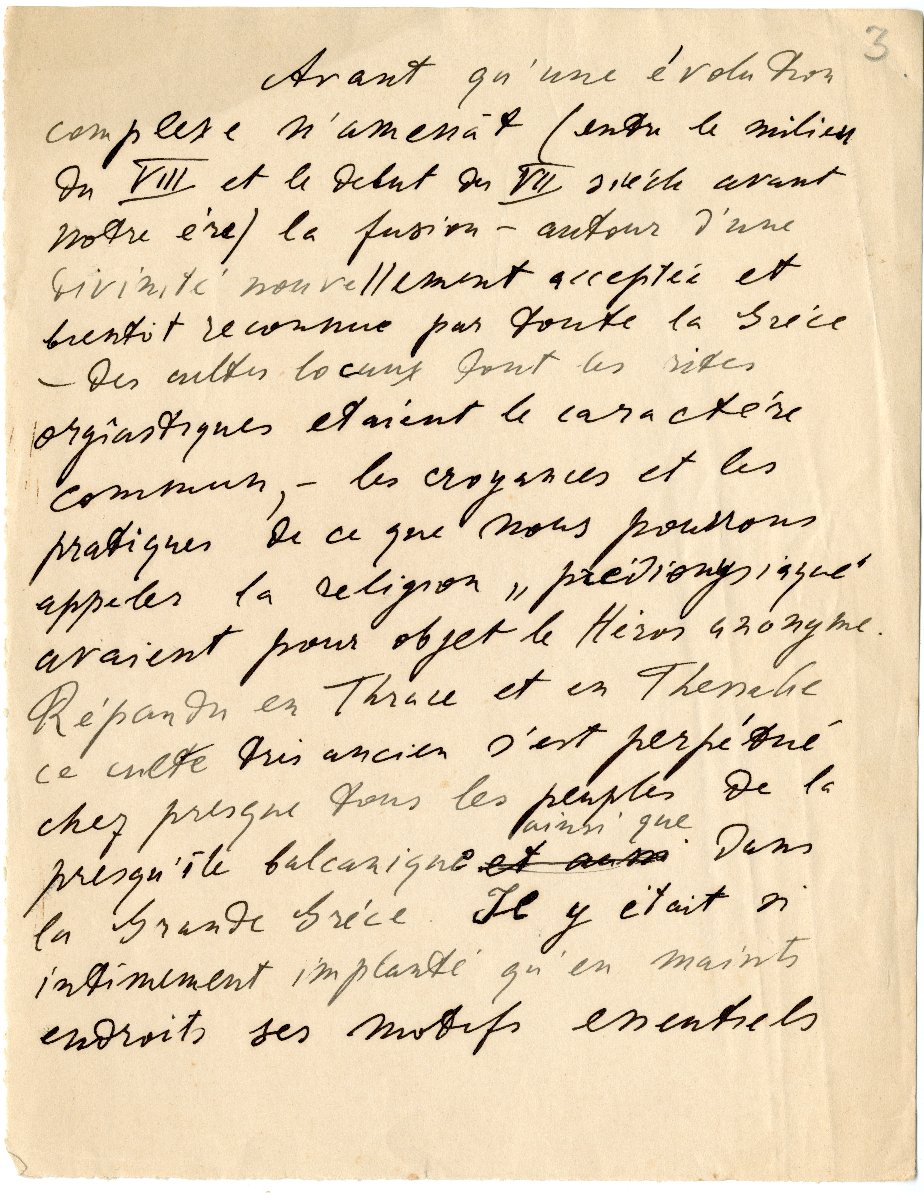 3
Avant qu'une évolution
complexe n'amenât (entre le milieu
du VIII et le début du VII siècle avant
notre ère) la fusion – autour d'une
divinité nouvellement acceptée et
bientôt reconnue par toute la Grèce
– des cultes locaux dont les rites
orgiastiques etaient le caractère
commun, – les croyances et les
pratiques de ce que nous pourrons
appeler la religion „prédionysiaque"
avaient pour objet le Héros anonyme.
Répandu en Thrace et en Thessalie
ce culte très ancien s'est perpétué
chez presque tous les peuples de la
ainsi que
presqu'île balcanique et aussi dans
la Grande Grèce. Il y était si
intimement implanté qu'en maints
endroits ses motifs essentiels